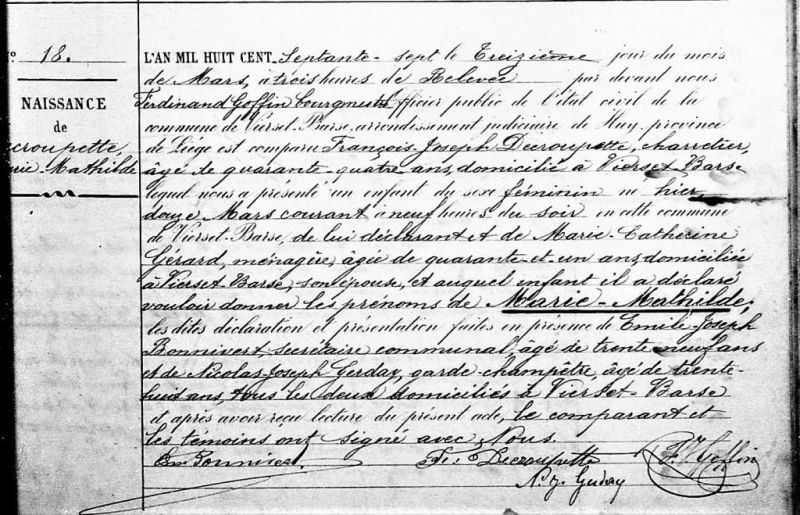 N° 18.
NAISSANCE
de
Decroupette,
Marie-Mathilde
L'AN MIL HUIT CENT Septante-sept le Treizième jour du mois
de Mars, à trois heures de Relevée par devant nous
Ferdinand Goffin bourgmestre Officier public de l'état civil de la
commune de Vierset-Barse, arrondissement judiciaire de Huy, province
de Liége est comparu François-Joseph Decroupette, charretier,
âgé de quarante-quatre ans, domicilié à Vierset-Barse
lequel nous a présenté un enfant du sexe féminin né hier
douze Mars courant à neuf heures du soir en cette commune
de Vierset-Barse, de lui déclarant et de Marie-Catherine
Gérard, ménagère, âgée de quarante-et-un ans, domiciliée
à Vierset-Barse, son épouse, et auquel enfant il a déclaré
vouloir donner les prénoms de Marie-Mathilde;
les dites déclaration et présentation faites en présence de Emile-Joseph
Bonnivert, secrétaire communal, âgé de trente neuf ans
et de Nicolas Joseph Gerday, garde-champêtre, âgé de trente-
huit ans, tous les deux domiciliés à Vierset-Barse
et après avoir reçu lecture du présent acte, le comparant et
les témoins ont signé avec Nous.
Em. Bonnivert. Fs. Decroupette F. J. Goffin
N. J. Gerday